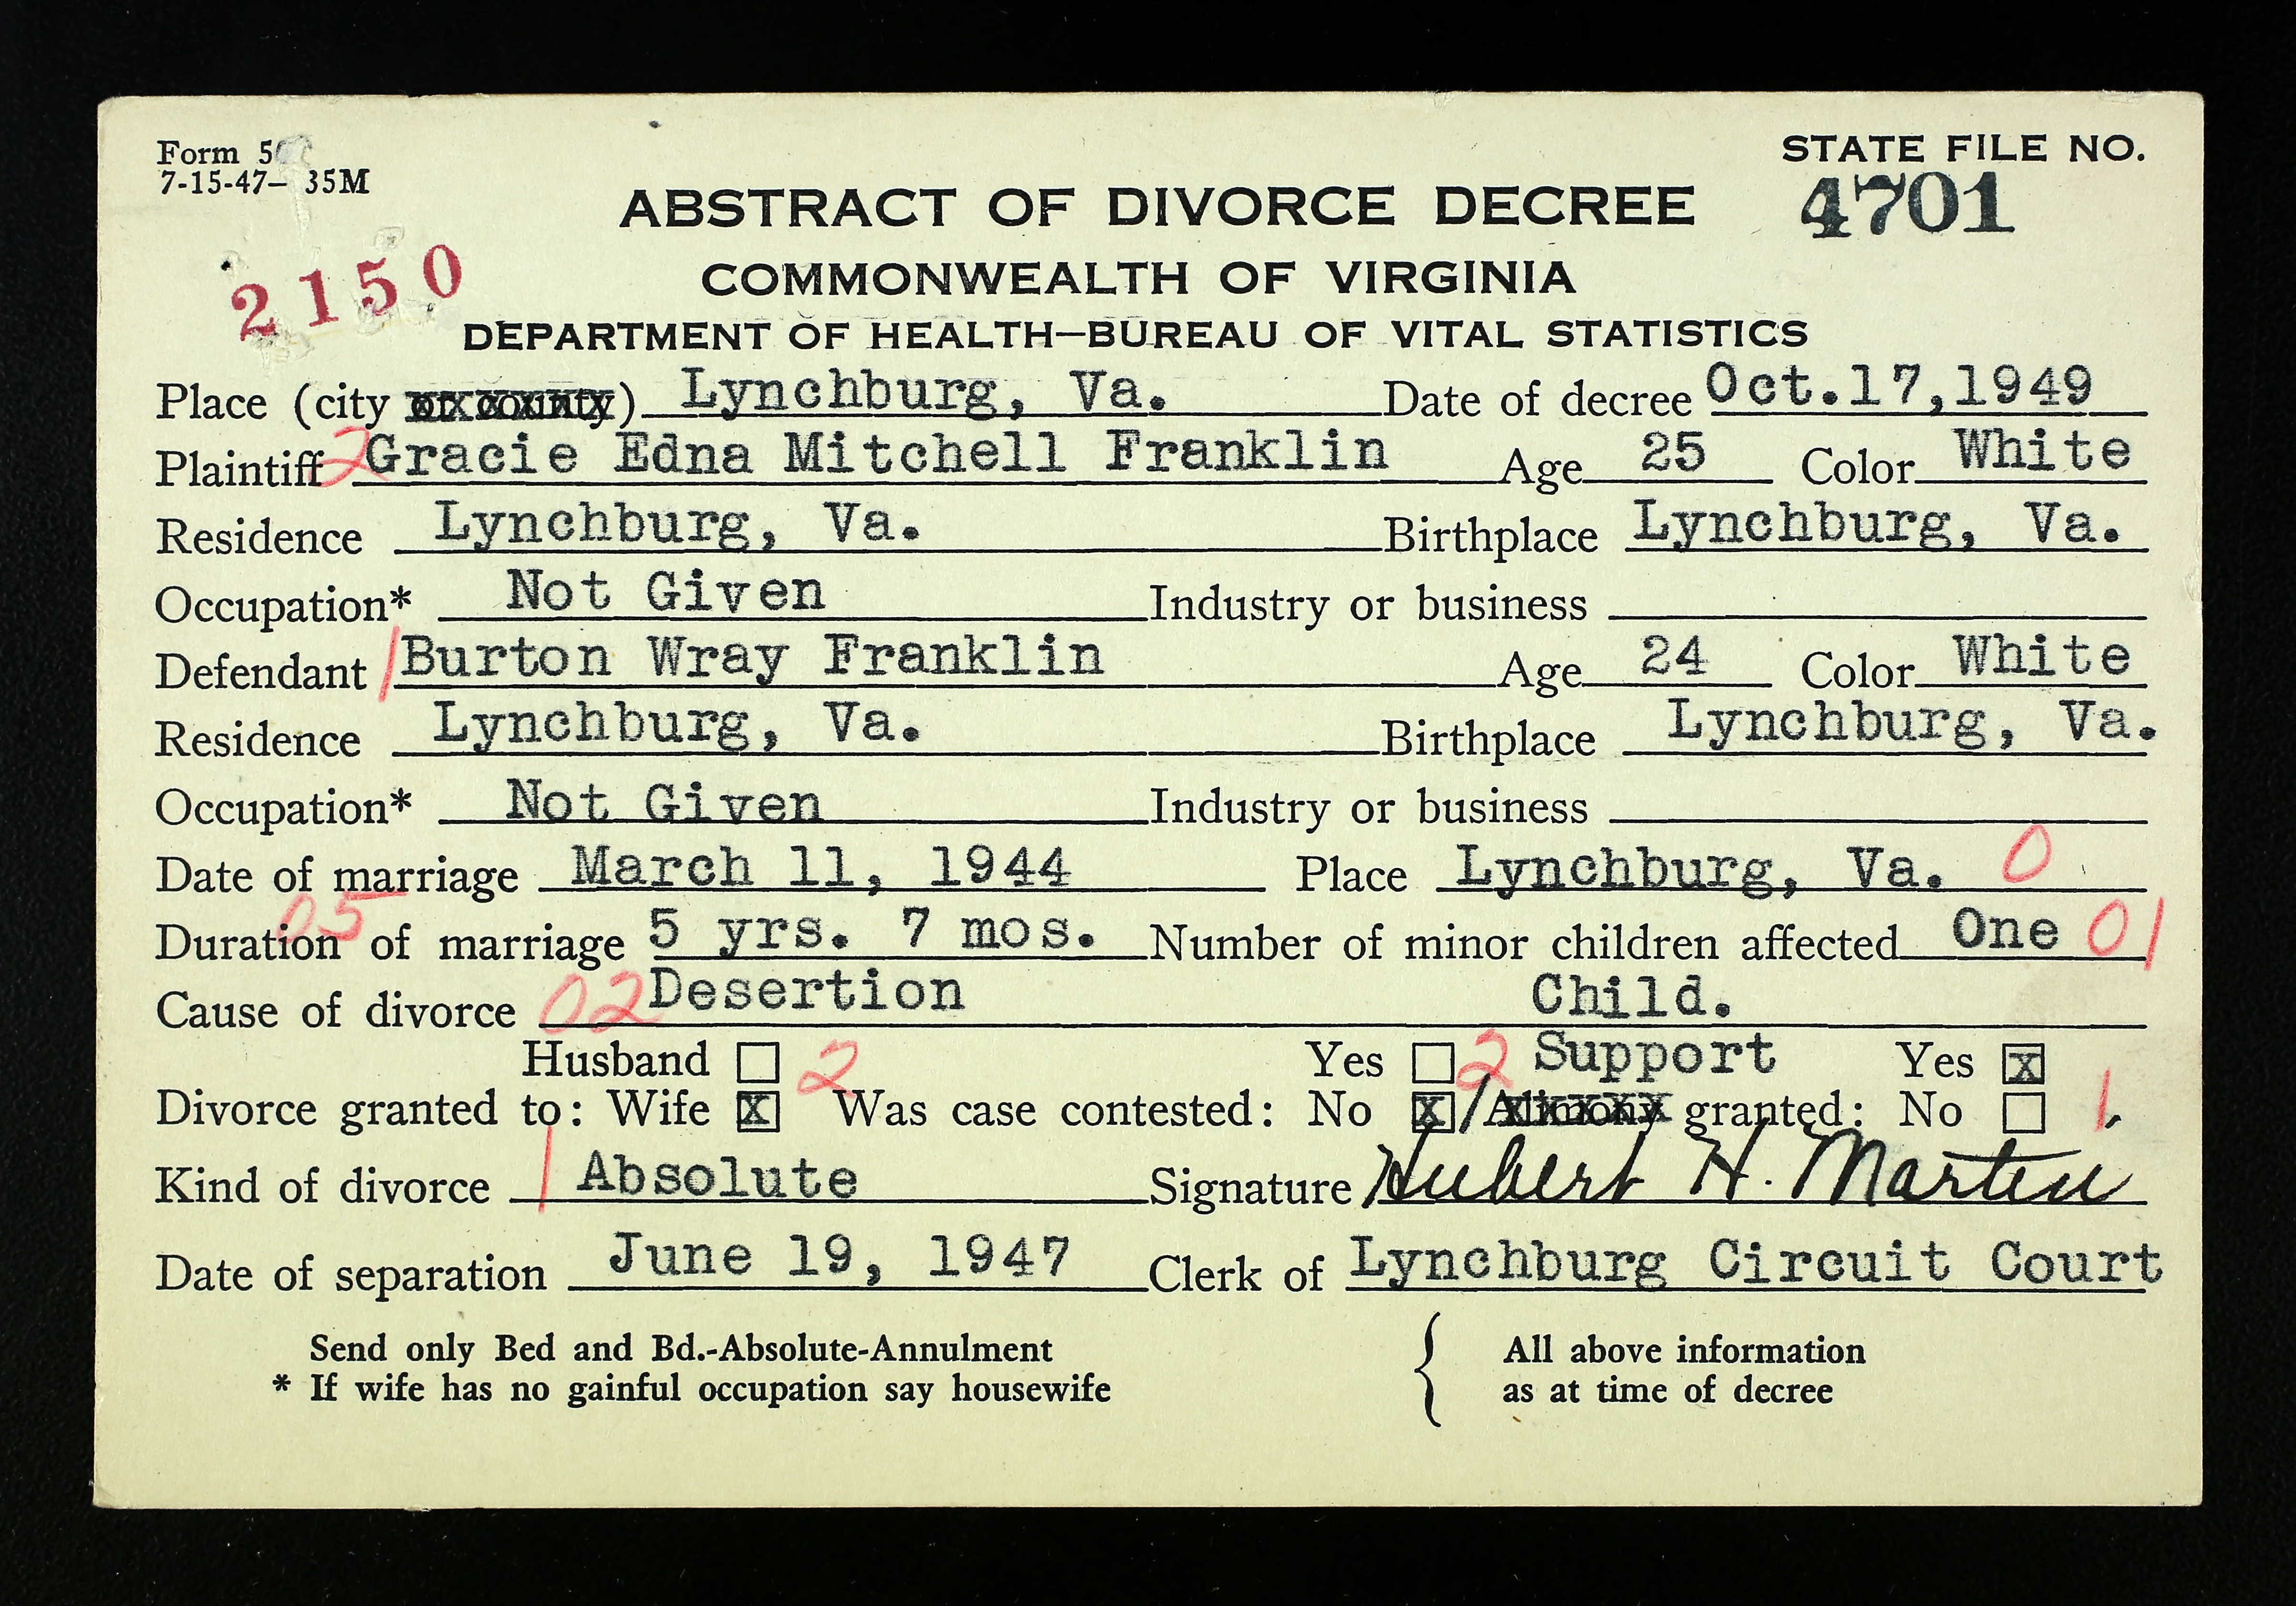 Form 5
STATE FILE NO.
7-15-47— 35M
4701
ABSTRACT OF DIVORCE DECREE
2150
COMMONWEALTH OF VIRGINIA
DEPARTMENT OF HEALTH—BUREAU OF VITAL STATISTICS
Place (city or county) Lynchburg, Va. Date of decree Oct.17,1949
Plaintiff 2 Gracie Edna Mitchell Franklin Age 25 Color White
Residence Lynchburg, Va. Birthplace Lynchburg, Va.
Occupation* Not Given Industry or business
Defendant 1 Burton Wray Franklin Age 24 Color White
Residence Lynchburg, Va. Birthplace Lynchburg, Va.
Occupation* Not Given Industry or business
Date of marriage March 11, 1944 Place Lynchburg, Va. 0
05
Duration of marriage 5 yrs. 7 mos. Number of minor children affected One 01
Cause of divorce 02 Desertion Child.
Husband 2 Yes 2 Support Yes x
Divorce granted to: Wife x Was case contested: No x / Alimony granted: No 1
Kind of divorce 1 Absolute Signature Hubert H. Martin
Date of separation June 19, 1947 Clerk of Lynchburg Circuit Court
Send only Bed and Bd.-Absolute-Annulment { All above information
* If wife has no gainful occupation say housewife as at time of decree